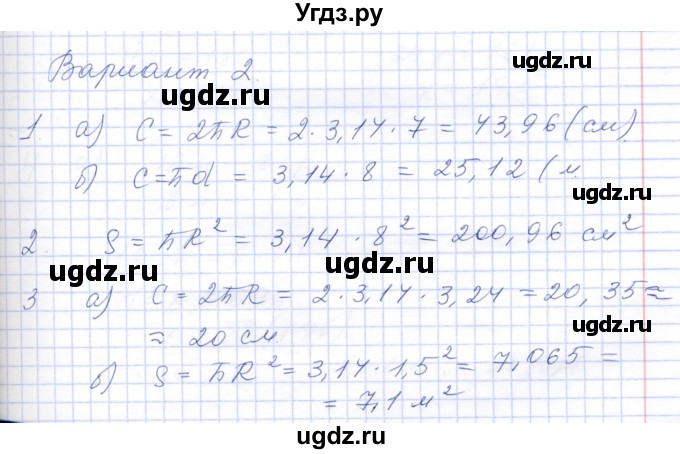 Угдз.ру
ugdz.ru
Вариант 2.
ugdz.ru ugdz.ru
1. а) C = 2πR = 2·3,14·7 = 43,96 (см).
б) C=πd = 3,14·8 = 25,12 (м
ugdz.ru ugdz.ru
2. S = πR² = 3,14·8² = 200,96 см²
ugdz.ru ugdz.ru
3 а) C = 2πR = 2·3,14·3,24 = 20,35 ≈
≈ 20 см.
ugdz.ru ugdz.ru
б) S = πR² = 3,14·1,5² = 7,065 =
= 7,1 м²
ugdz.ru
ugdz.ru